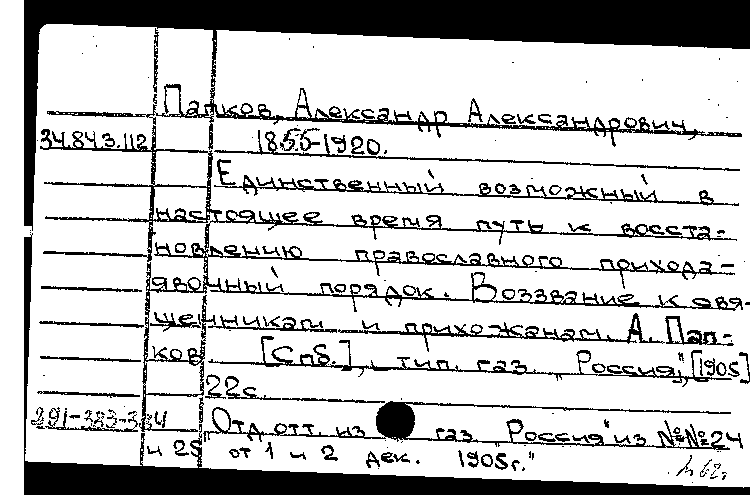 Папков, Александр Александрович,
34.843.112 1855-1920.
Единственный возможный в
настоящее время путь к восста-
новлению православного прихода-
явочный порядок. Воззвание к свя-
щенникам и прихожанам. А. Пап-
ков. [СПб.], тип. газ. „Россия", [1905]
22с.
391-383-384 „Отд. отт. из газ. „Россия" из №№24
и 25 от 1 и 2 дек. 1905г."